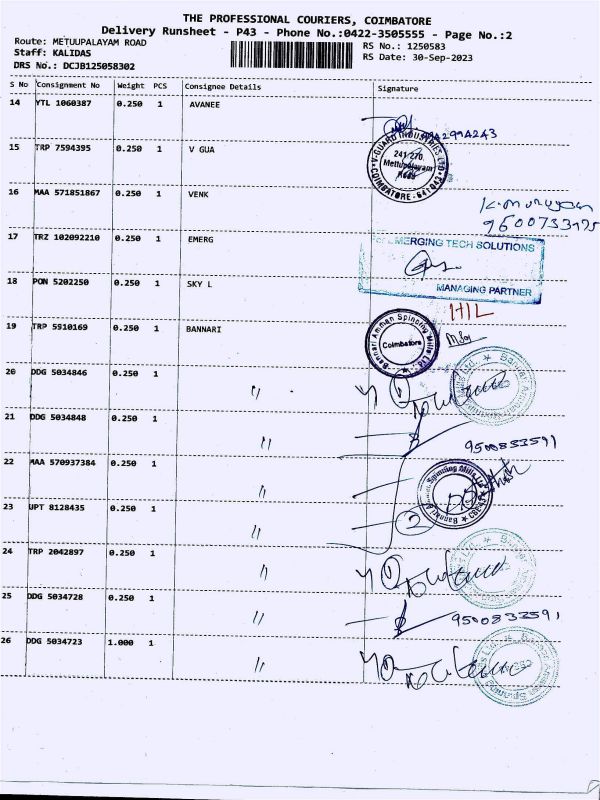 THE PROFESSIONAL COURIERS, COIMBATORE
Delivery Runsheet - P43 - Phone No.:0422-3505555 - Page No.:2
Route: METUUPALAYAM ROAD
RS No.: 1250583
Staff: KALIDAS
RS Date: 30-Sep-2023
DRS No.: DCJB125058302
S No Consignment No Weight PCS Consignee Details Signature
14 YTL 1060387 0.250 1 AVANEE
15 TRP 7594395 0.250 1 V GUA
V-GUARD INDUSTRIES LTD
241/270,
Mettupalayam
Road
COIMBATORE - 641 043
16 MAA 571851867 0.250 1 VENK
17 TRZ 102092210 0.250 1 EMERG
EMERGING TECH SOLUTIONS
MANAGING PARTNER
18 PON 5202250 0.250 1 SKY L
HIL
19 TRP 5910169 0.250 1 BANNARI
Bannari Amman Spinning Mills Ltd
Coimbatore
20 DDG 5034846 0.250 1 "
21 DDG 5034848 0.250 1 "
9500833591
22 MAA 570937384 0.250 1 "
23 UPT 8128435 0.250 1 "
2
24 TRP 2042897 0.250 1 "
25 DDG 5034728 0.250 1 "
9500833591
26 DDG 5034723 1.000 1 "